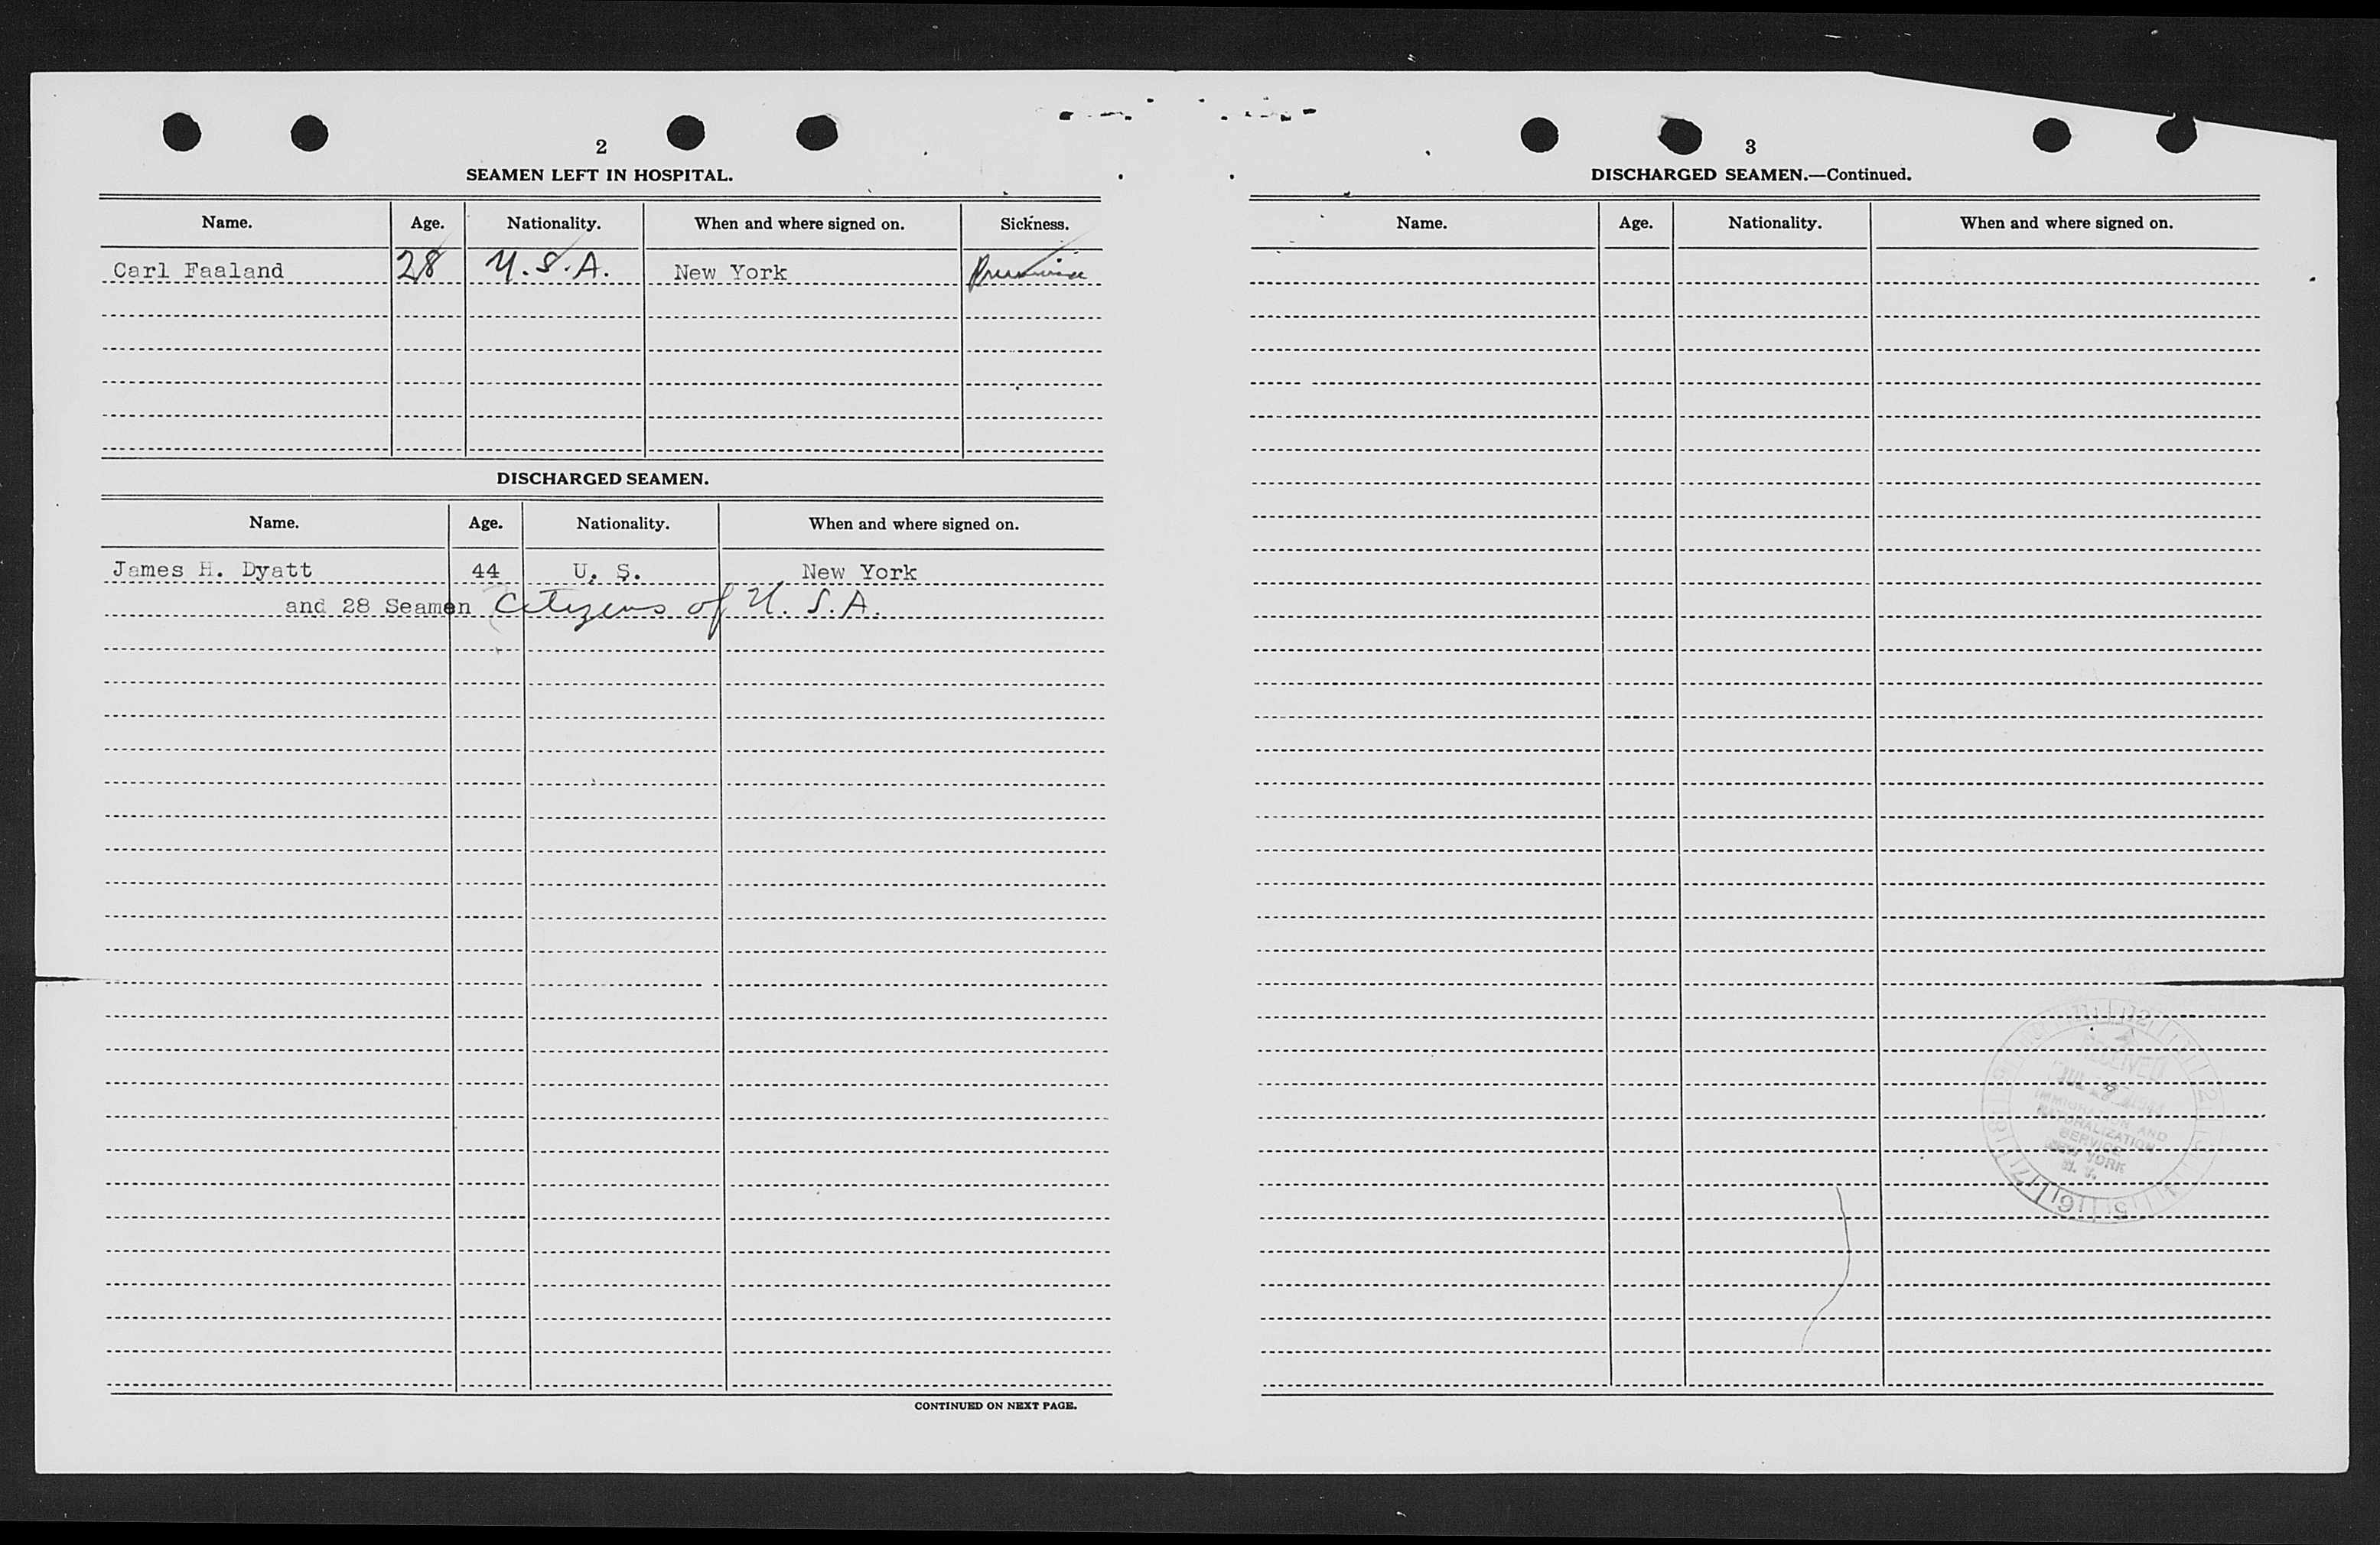 2
SEAMEN LEFT IN HOSPITAL.
Name. Age. Nationality. When and where signed on. Sickness.
Carl Faaland 28 U.S.A. New York
DISCHARGED SEAMEN.
Name. Age. Nationality. When and where signed on.
James H. Dyatt 44 U. S. New York
and 28 Seamen Citizens of U. S. A.
CONTINUED ON NEXT PAGE.
3
DISCHARGED SEAMEN.—Continued.
Name. Age. Nationality. When and where signed on.
RECEIVED
JUL
IMMIGRATION AND
NATURALIZATION
SERVICE
NEW YORK
N. Y.